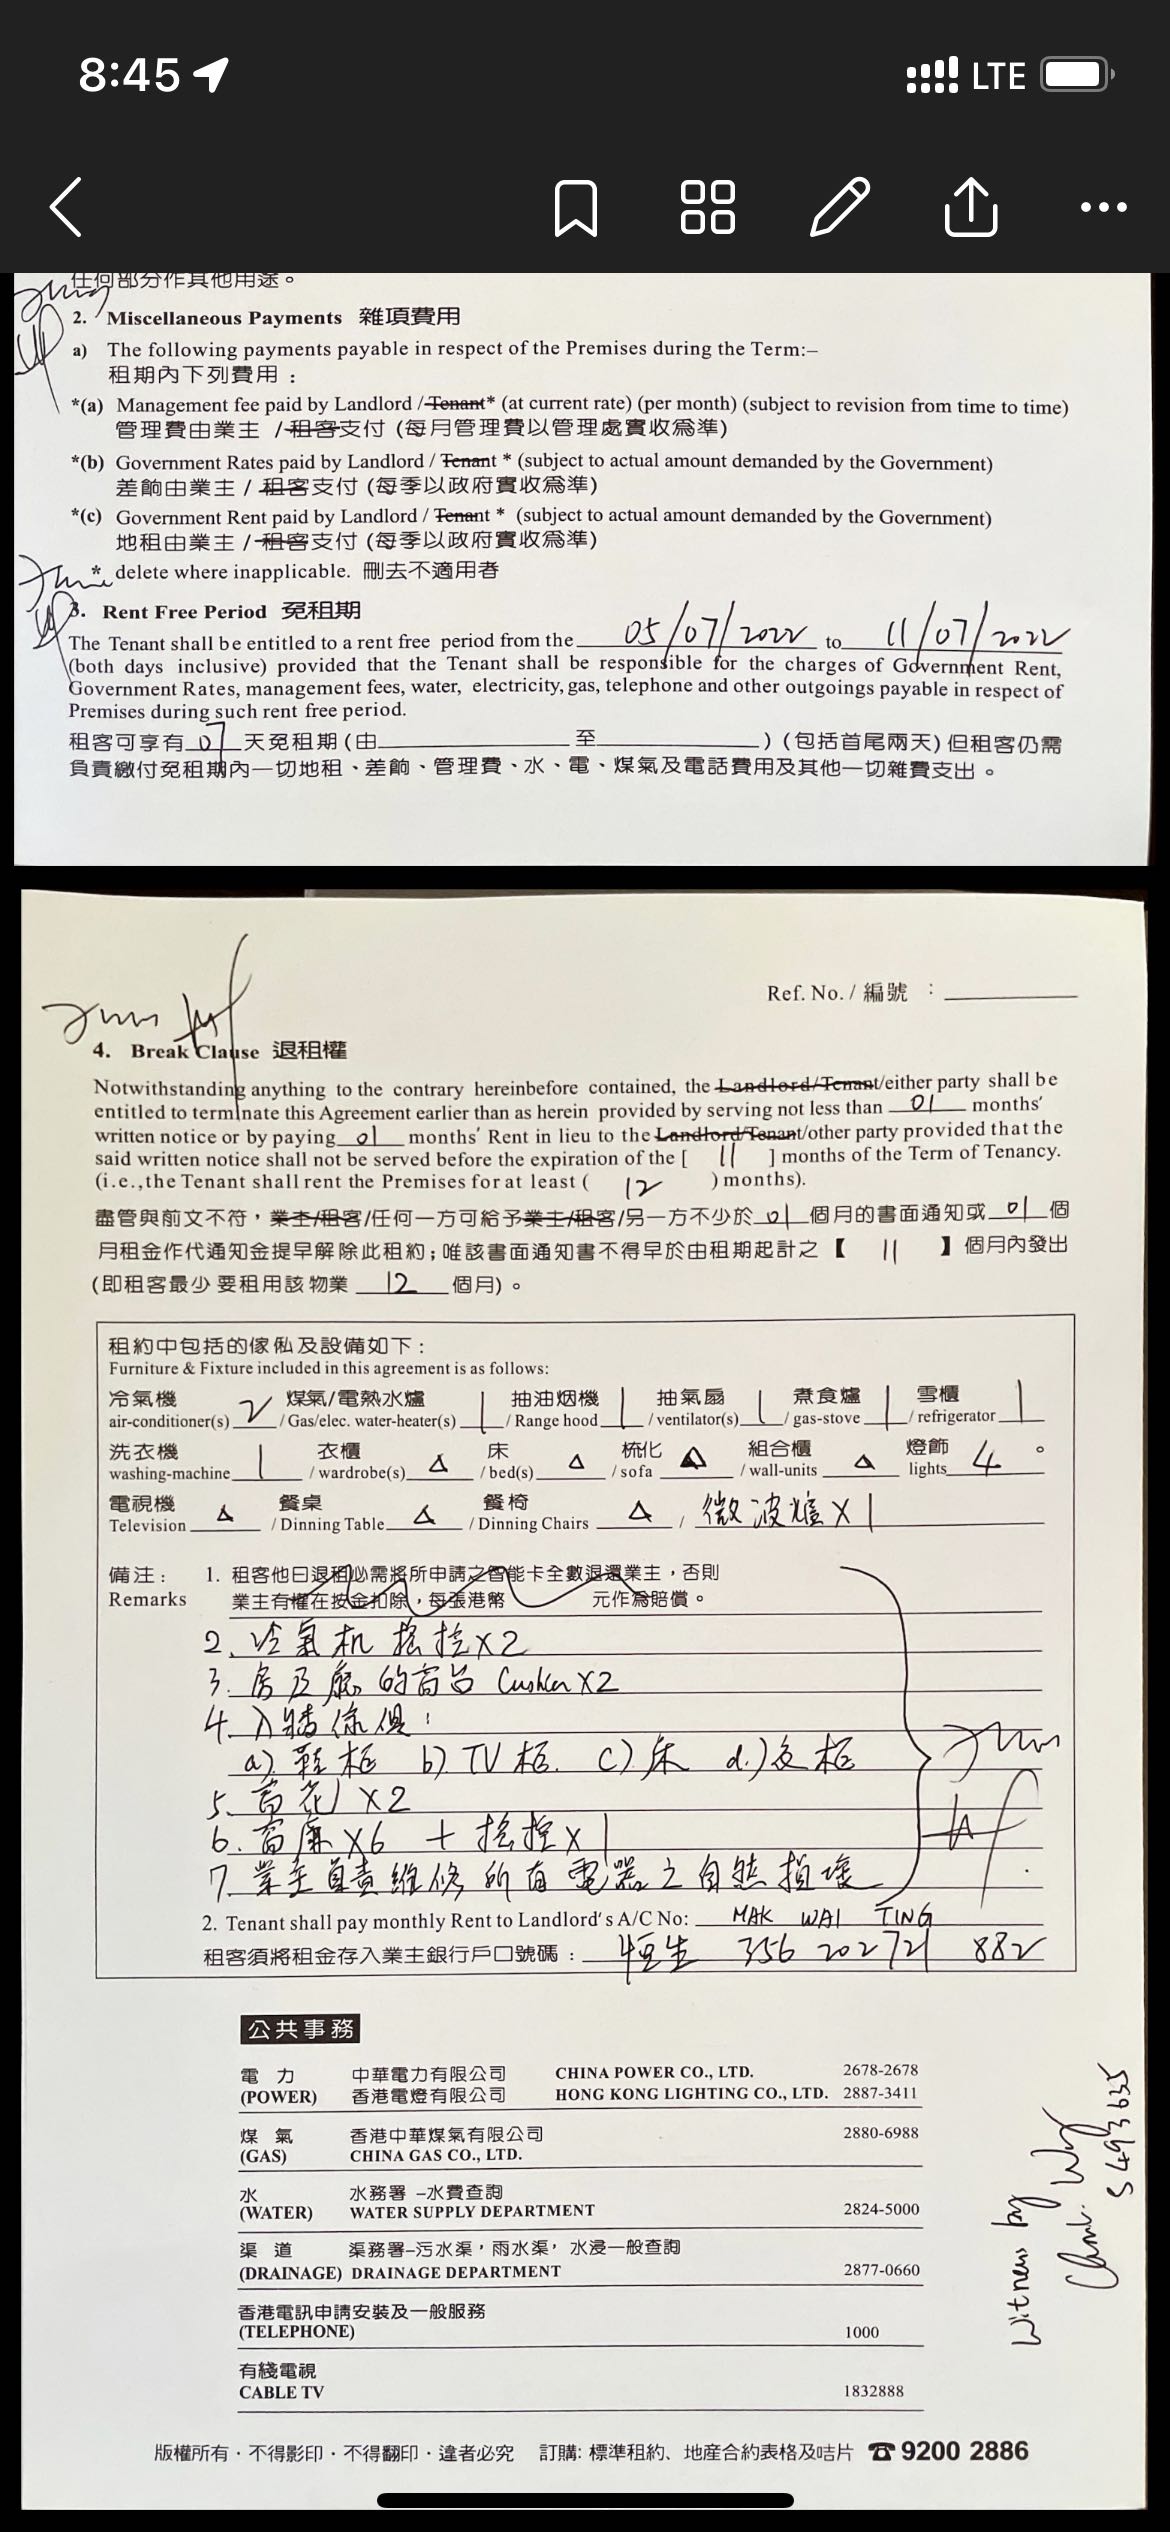 8:45
LTE
任何部分作其他用途。
2. Miscellaneous Payments 雜項費用
a) The following payments payable in respect of the Premises during the Term:–
租期內下列費用：
*(a) Management fee paid by Landlord / Tenant* (at current rate) (per month) (subject to revision from time to time)
管理費由業主 / 租客支付 (每月管理費以管理處實收為準)
*(b) Government Rates paid by Landlord / Tenant * (subject to actual amount demanded by the Government)
差餉由業主 / 租客支付 (每季以政府實收為準)
*(c) Government Rent paid by Landlord / Tenant * (subject to actual amount demanded by the Government)
地租由業主 / 租客支付 (每季以政府實收為準)
* delete where inapplicable. 刪去不適用者
3. Rent Free Period 免租期
The Tenant shall be entitled to a rent free period from the 05/07/2022 to 11/07/2022
(both days inclusive) provided that the Tenant shall be responsible for the charges of Government Rent,
Government Rates, management fees, water, electricity, gas, telephone and other outgoings payable in respect of
Premises during such rent free period.
租客可享有 07 天免租期 (由 至 ) (包括首尾兩天) 但租客仍需
負責繳付免租期內一切地租、差餉、管理費、水、電、煤氣及電話費用及其他一切雜費支出。
Ref. No. / 編號 :
4. Break Clause 退租權
Notwithstanding anything to the contrary hereinbefore contained, the Landlord/Tenant/either party shall be
entitled to terminate this Agreement earlier than as herein provided by serving not less than 01 months'
written notice or by paying 01 months' Rent in lieu to the Landlord/Tenant/other party provided that the
said written notice shall not be served before the expiration of the [ 11 ] months of the Term of Tenancy.
(i.e.,the Tenant shall rent the Premises for at least ( 12 ) months).
盡管與前文不符，業主/租客/任何一方可給予業主/租客/另一方不少於 01 個月的書面通知或 01 個
月租金作代通知金提早解除此租約；唯該書面通知書不得早於由租期起計之【 11 】個月內發出
(即租客最少要租用該物業 12 個月)。
租約中包括的傢俬及設備如下：
Furniture & Fixture included in this agreement is as follows:
冷氣機 煤氣/電熱水爐 抽油烟機 抽氣扇 煮食爐 雪櫃
air-conditioner(s) 2 / Gas/elec. water-heater(s) 1 / Range hood 1 / ventilator(s) 1 / gas-stove 1 / refrigerator 1
洗衣機 衣櫃 床 梳化 組合櫃 燈飾
washing-machine 1 / wardrobe(s) △ / bed(s) △ / sofa △ / wall-units △ lights 4 。
電視機 餐桌 餐椅
Television △ / Dinning Table △ / Dinning Chairs △ / 微波爐 X 1
備注： 1. 租客他日退租必需將所申請之智能卡全數退還業主，否則
Remarks 業主有權在按金扣除，每張港幣 元作為賠償。
2. 冷氣机 搖控 X 2
3. 房及廳的窗台 Cushion X 2
4. 入牆傢俱：
a). 鞋柜 b). TV 柜. c). 床 d.) 衣柜
5. 窗花 X 2
6. 窗廉 X 6 + 搖控 X 1
7. 業主負責維修所有電器之自然損壞
2. Tenant shall pay monthly Rent to Landlord's A/C No: MAK WAI TING
租客須將租金存入業主銀行戶口號碼： 恒生 356 202721 882
公共事務
電力 中華電力有限公司 CHINA POWER CO., LTD. 2678-2678
(POWER) 香港電燈有限公司 HONG KONG LIGHTING CO., LTD. 2887-3411
煤氣 香港中華煤氣有限公司 2880-6988
(GAS) CHINA GAS CO., LTD.
水 水務署 –水費查詢
(WATER) WATER SUPPLY DEPARTMENT 2824-5000
渠道 渠務署–污水渠，雨水渠，水浸一般查詢
(DRAINAGE) DRAINAGE DEPARTMENT 2877-0660
香港電訊申請安裝及一般服務
(TELEPHONE) 1000
有綫電視
CABLE TV 1832888
Witness by
S 493635
版權所有・不得影印・不得翻印・違者必究 訂購: 標準租約、地產合約表格及咭片 ☎ 9200 2886